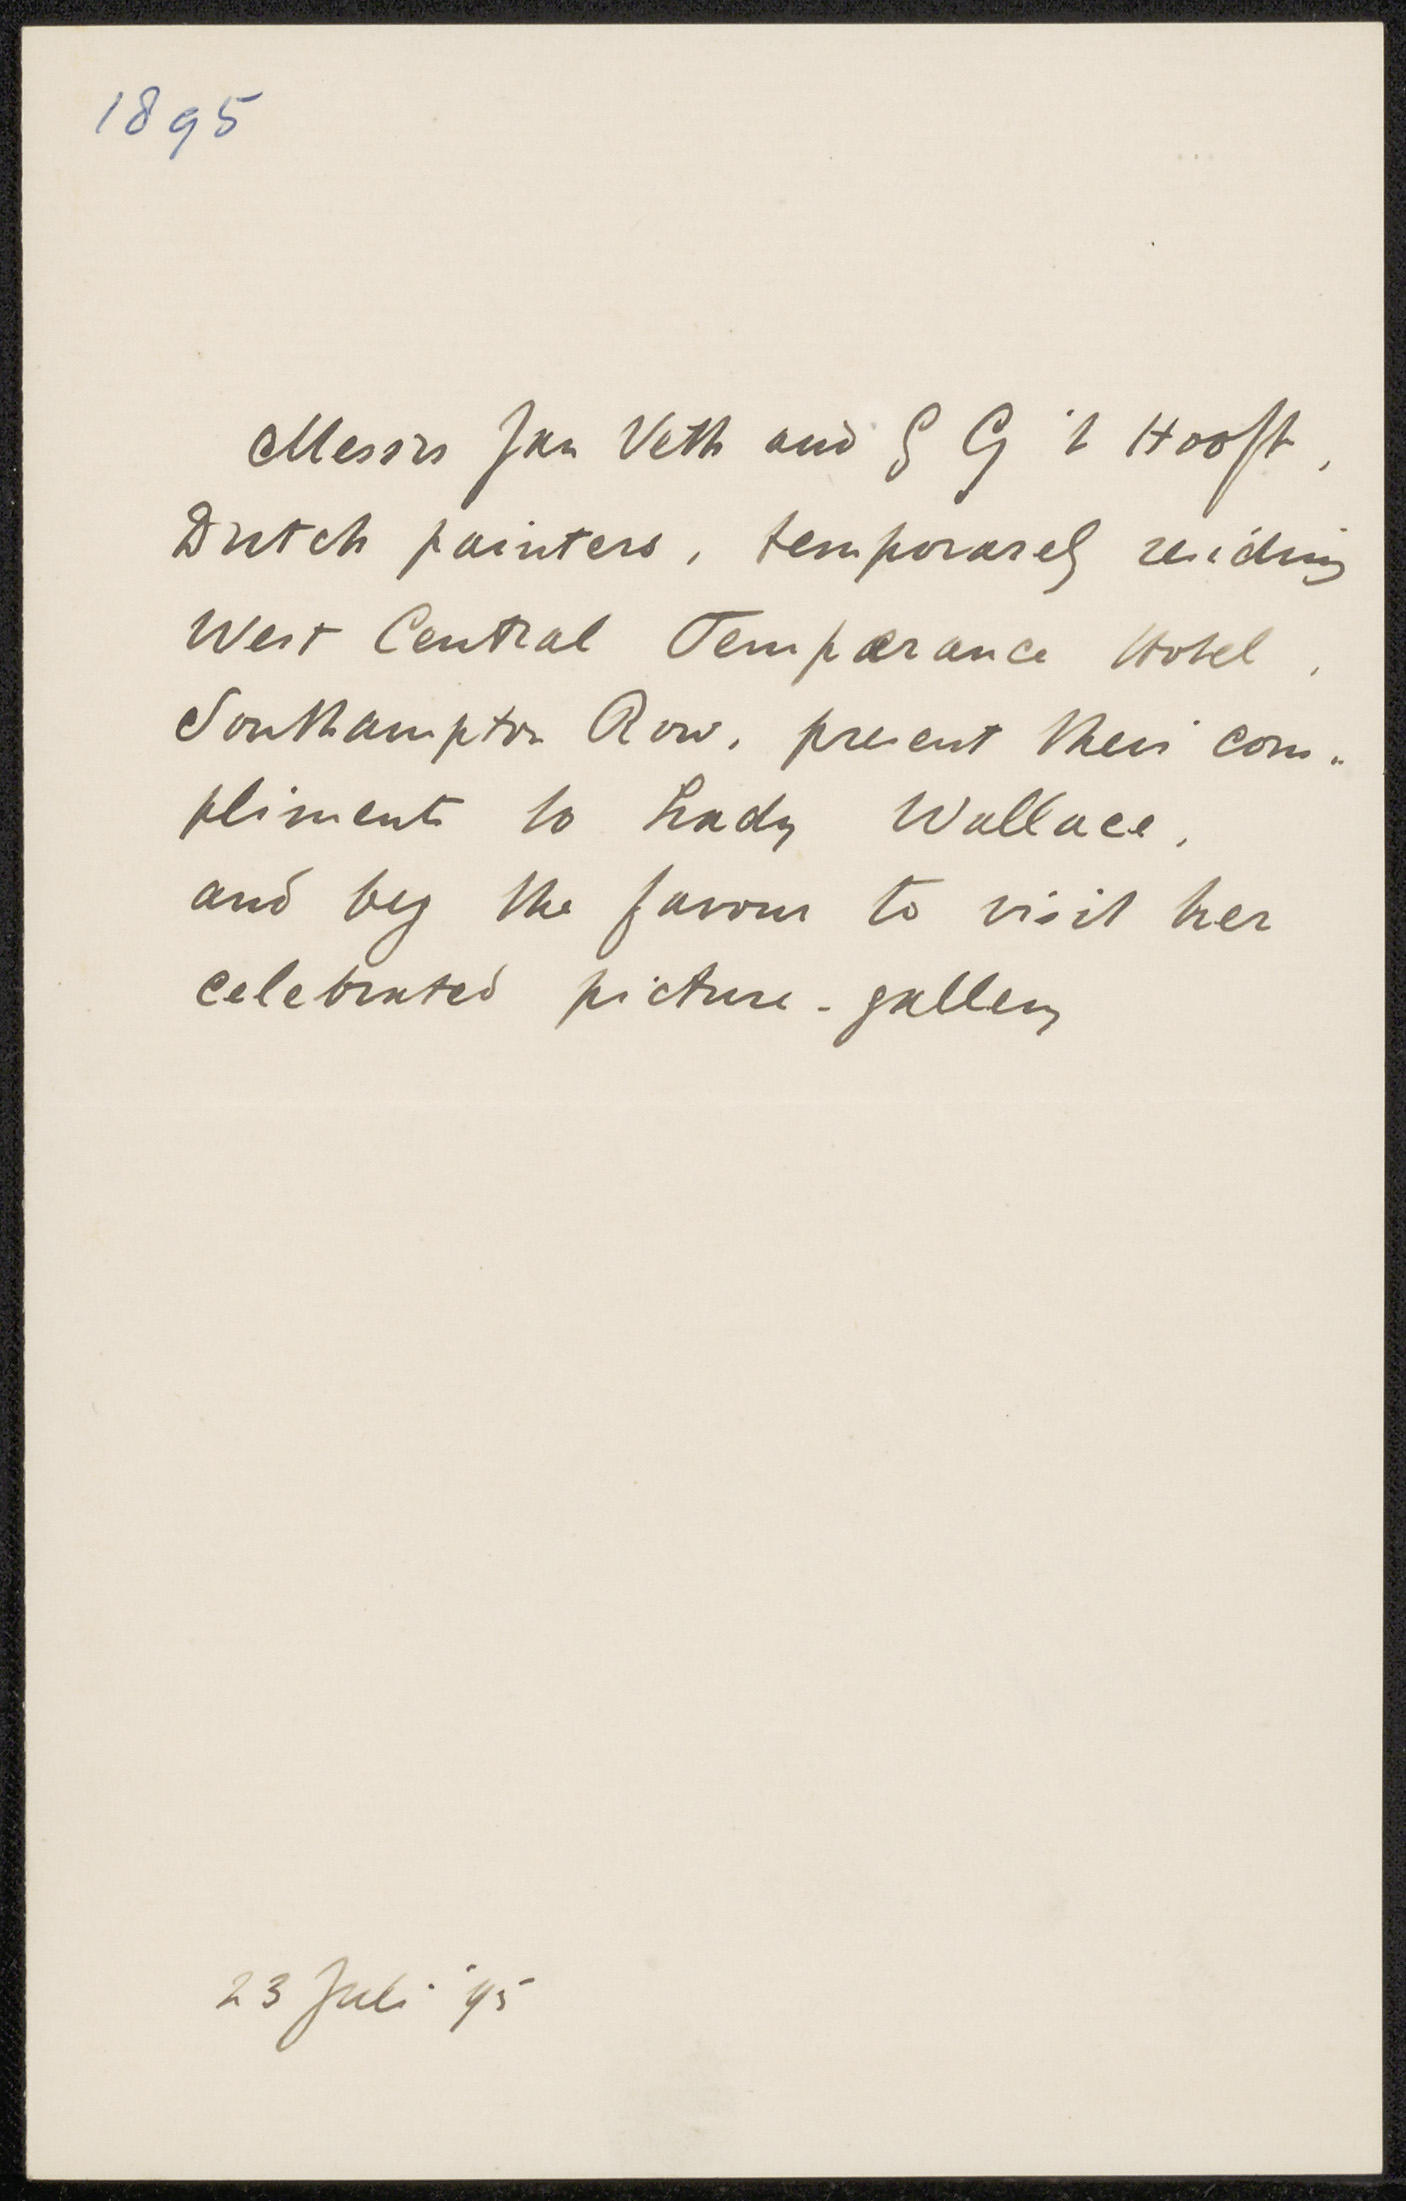 1895
Messrs Jan Veth and G 't Hooft,
Dutch painters, temporarely residing
West Central Temperance Hotel,
Southampton Row, present their com„
pliments to Lady Wallace,
and beg the favour to visit her
celebrated picture-gallery
23 Juli '95